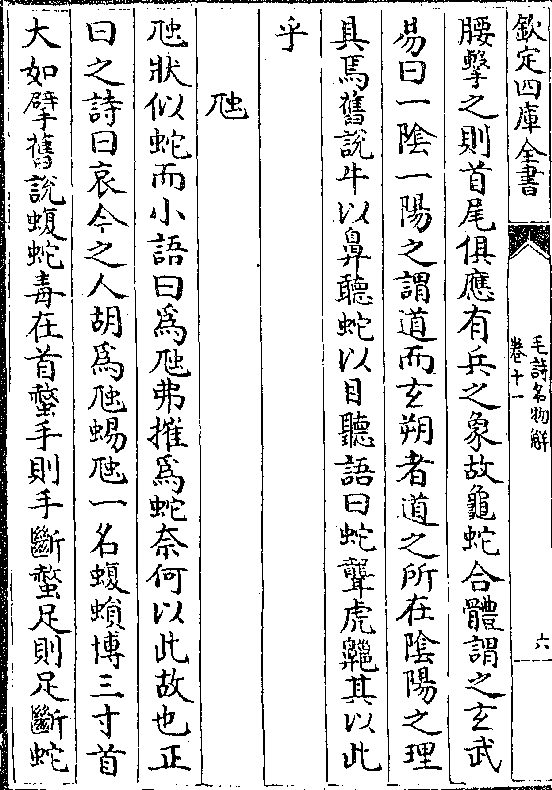 欽定四庫全書
毛詩名物解
卷十一
六
腰擊之則首尾俱應有兵之象故龜蛇合體謂之玄武
易曰一陰一陽之謂道而玄朔者道之所在陰陽之理
具焉舊說牛以鼻聽蛇以目聽語曰蛇聾虎齆其以此
乎
虺
虺狀似蛇而小語曰為虺弗摧為蛇奈何以此故也正
曰之詩曰哀今之人胡為虺蜴虺一名蝮蝢博三寸首
大如擘舊說蝮蛇毒在首螫手則手斷螫足則足斷蛇